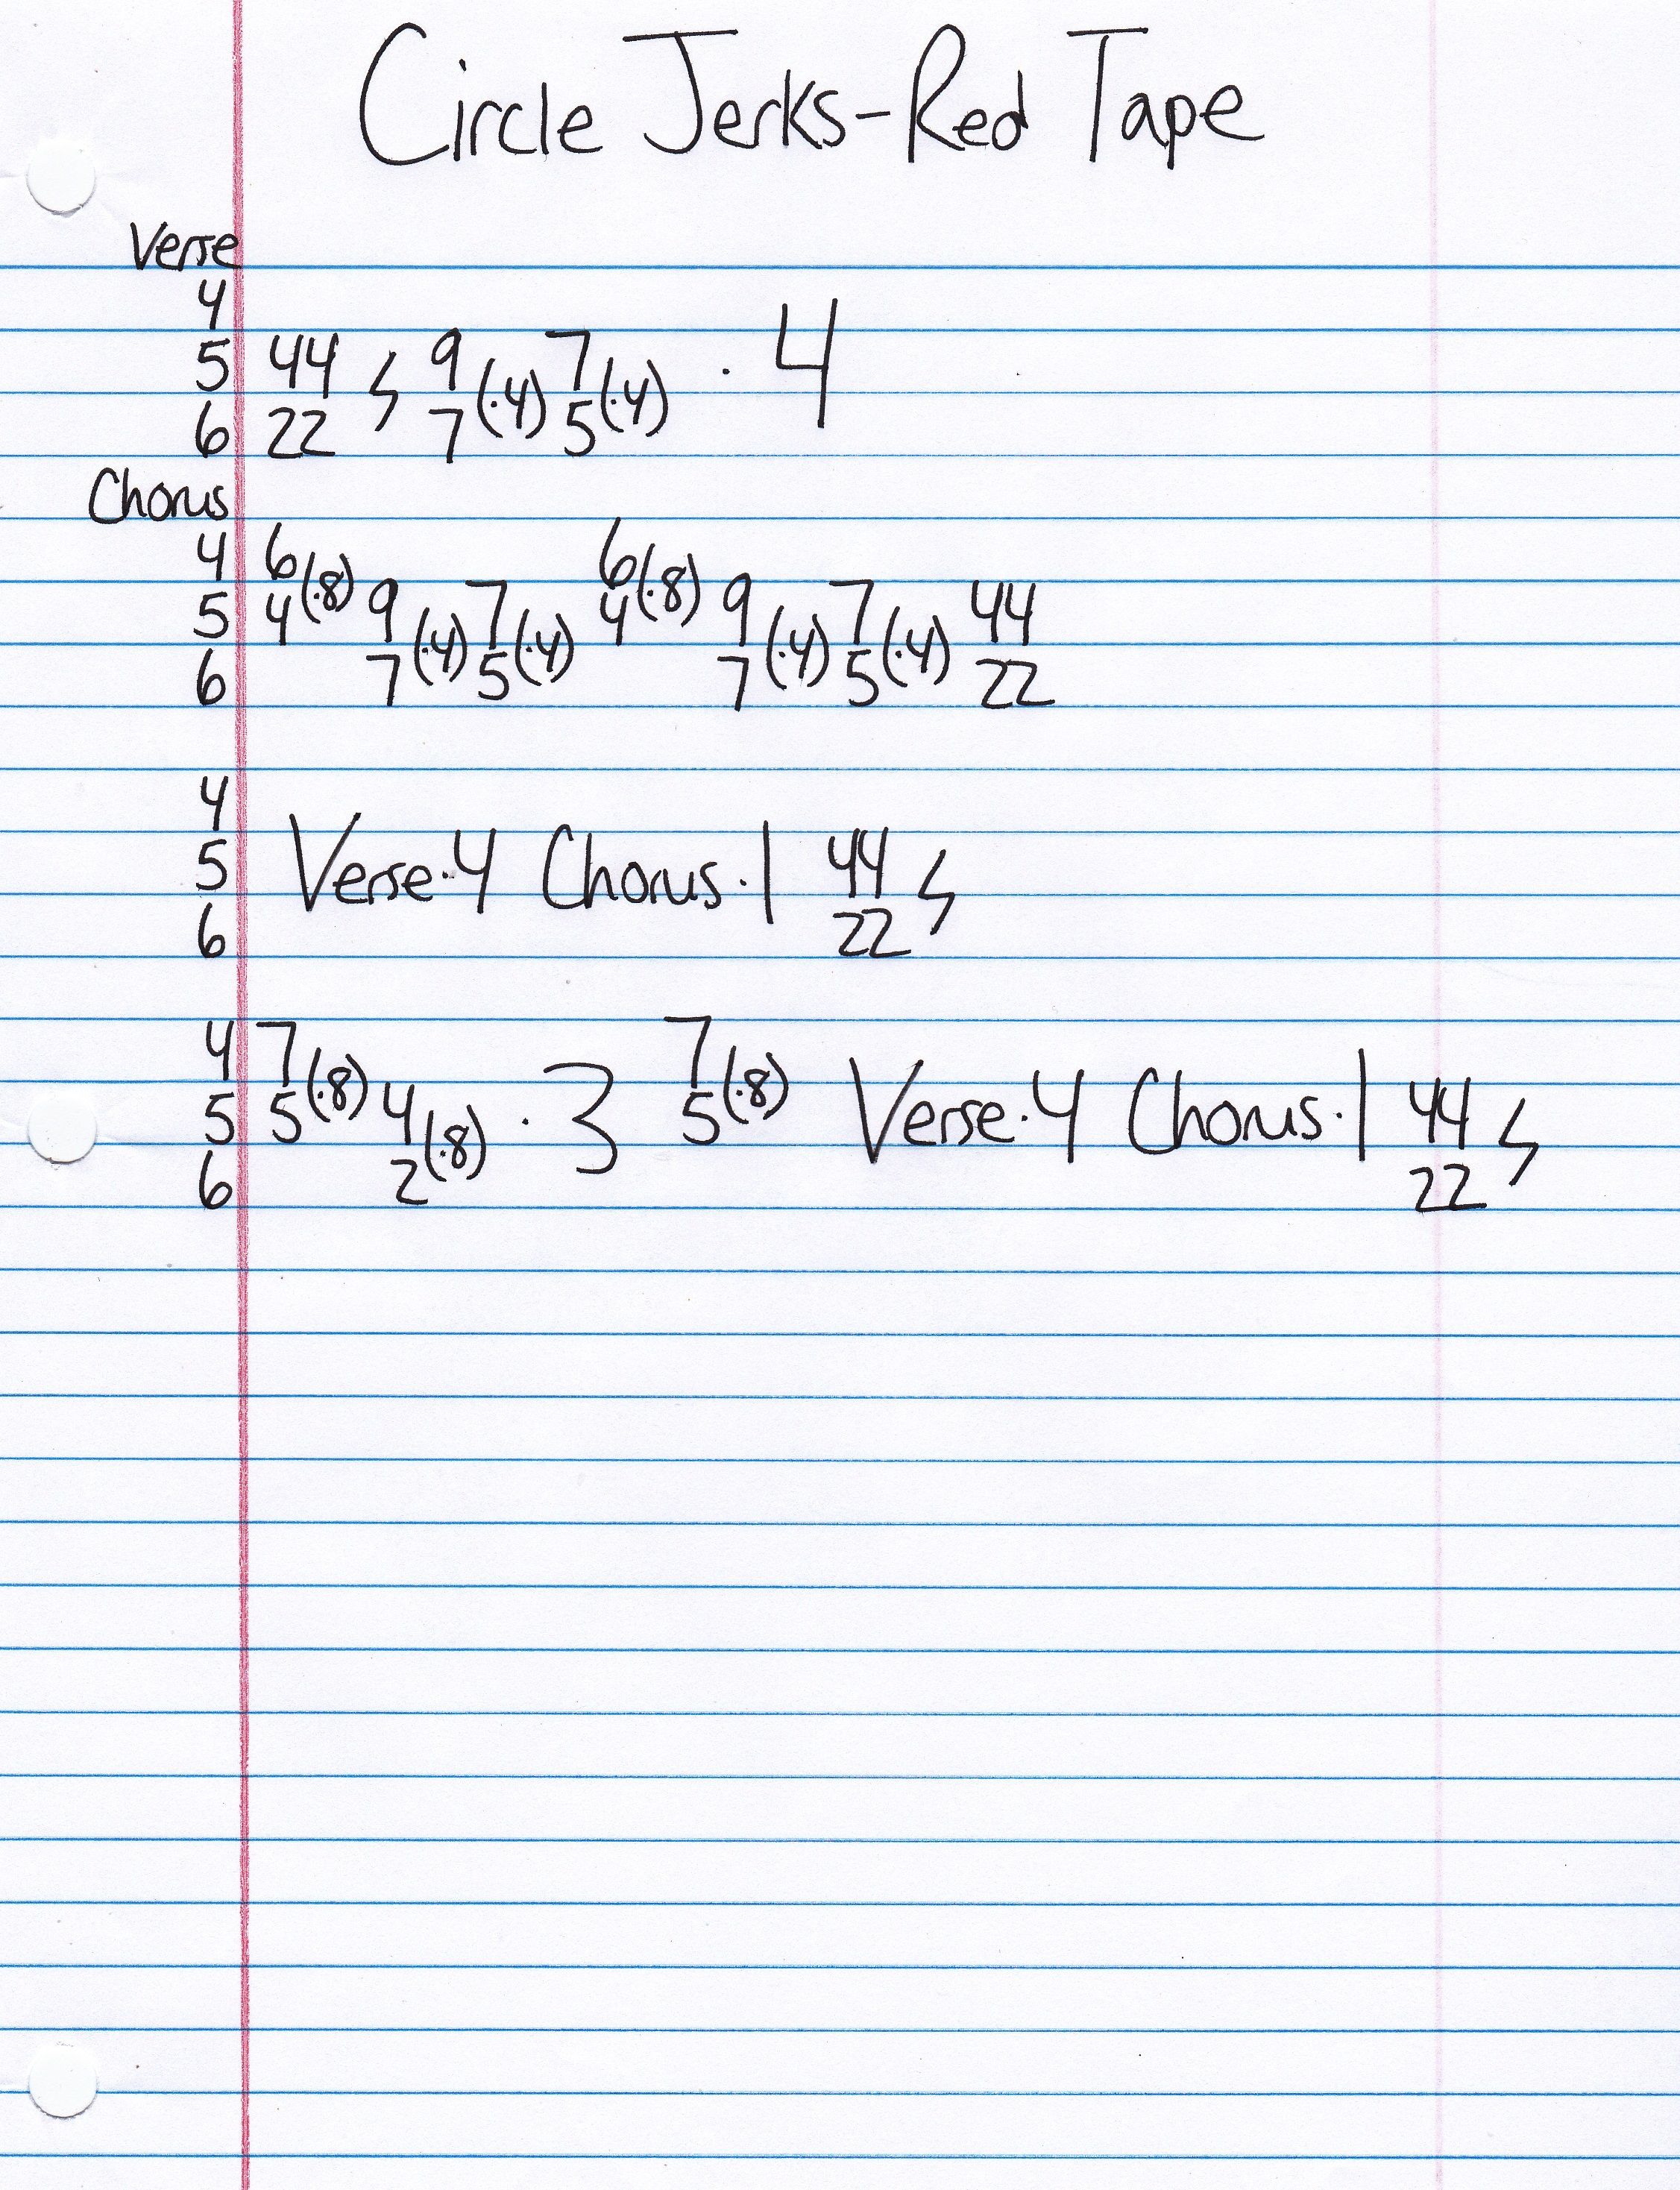 Circle Jerks-Red Tape
Verse
4
5 44 ϟ 9 (·4) 7 (·4) · 4
6 22 7 5
Chorus
4 6 (·8) 6 (·8)
5 4 9 (·4) 7 (·4) 4 9 (·4) 7 (·4) 44
6 7 5 7 5 22
4
5 Verse·4 Chorus·1 44 ϟ
6 22
4 7 (·8) 7 (·8)
5 5 4 (·8) · 3 5 Verse·4 Chorus·1 44 ϟ
6 2 22